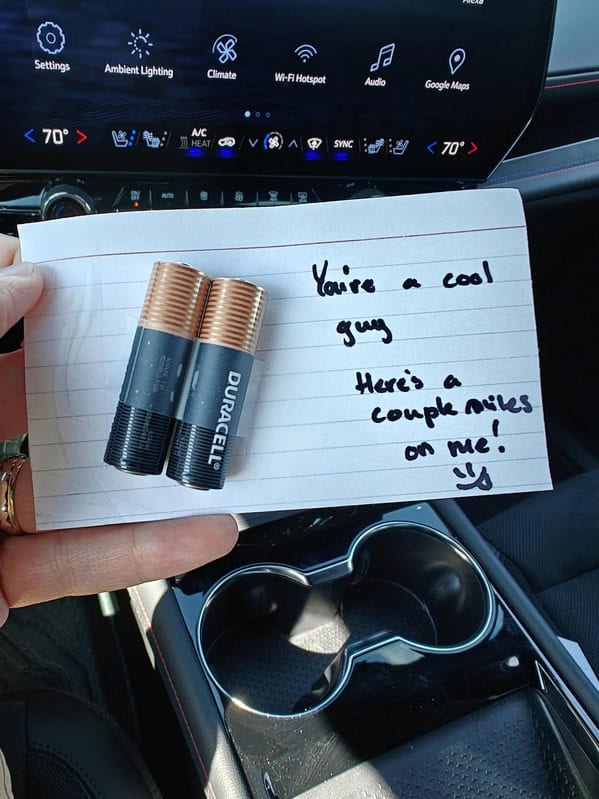 Alexa
Settings
Ambient Lighting
Climate
Wi-Fi Hotspot
Audio
Google Maps
< 70° >
A/C
HEAT
SYNC
< 70° >
AUTO
You're a cool
guy
Here's a
couple miles
on me!
DURACELL®